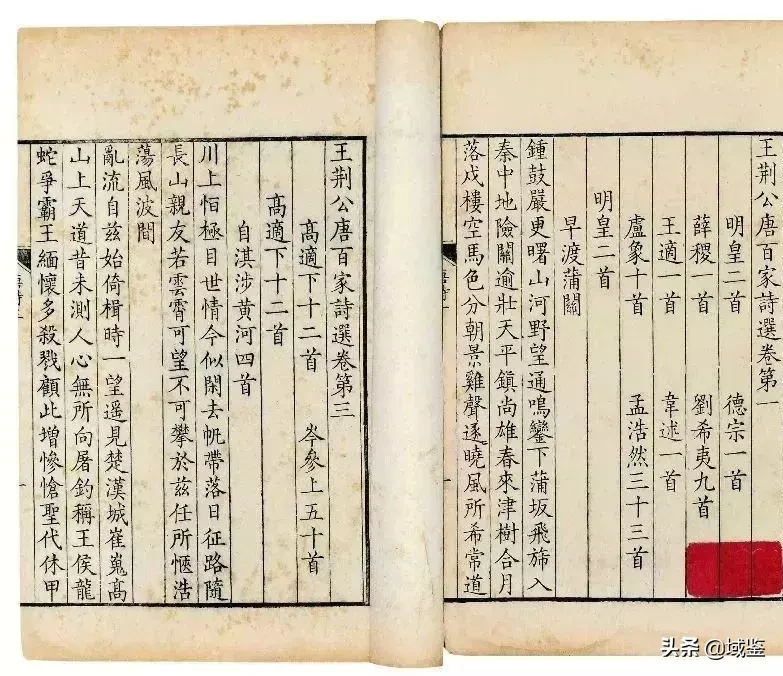 王荆公唐百家詩選卷第一
明皇二首 德宗一首
薛稷一首 劉希夷九首
王適一首 韋述一首
盧象十首 孟浩然三十三首
明皇二首
早渡蒲關
鍾鼓嚴更曙山河野望通鳴鑾下蒲坂飛斾入
秦中地險關逾壯天平鎮尚雄春來津樹合月
落戍樓空馬色分朝景雞聲逐曉風所希常道
王荆公唐百家詩選卷第三
高適下十二首 岑參上五十首
高適下十二首
自淇涉黄河四首
川上恒極目世情今似閑去帆帶落日征路隨
長山親友若雲霄可望不可攀於兹任所愜浩
蕩風波間
亂流自兹始倚楫時一望遥見楚漢城崔嵬高
山上天道昔未測人心無所向屠釣稱王侯龍
蛇爭霸王緬懷多殺戮顧此增慘愴聖代休甲
头条 @域鉴